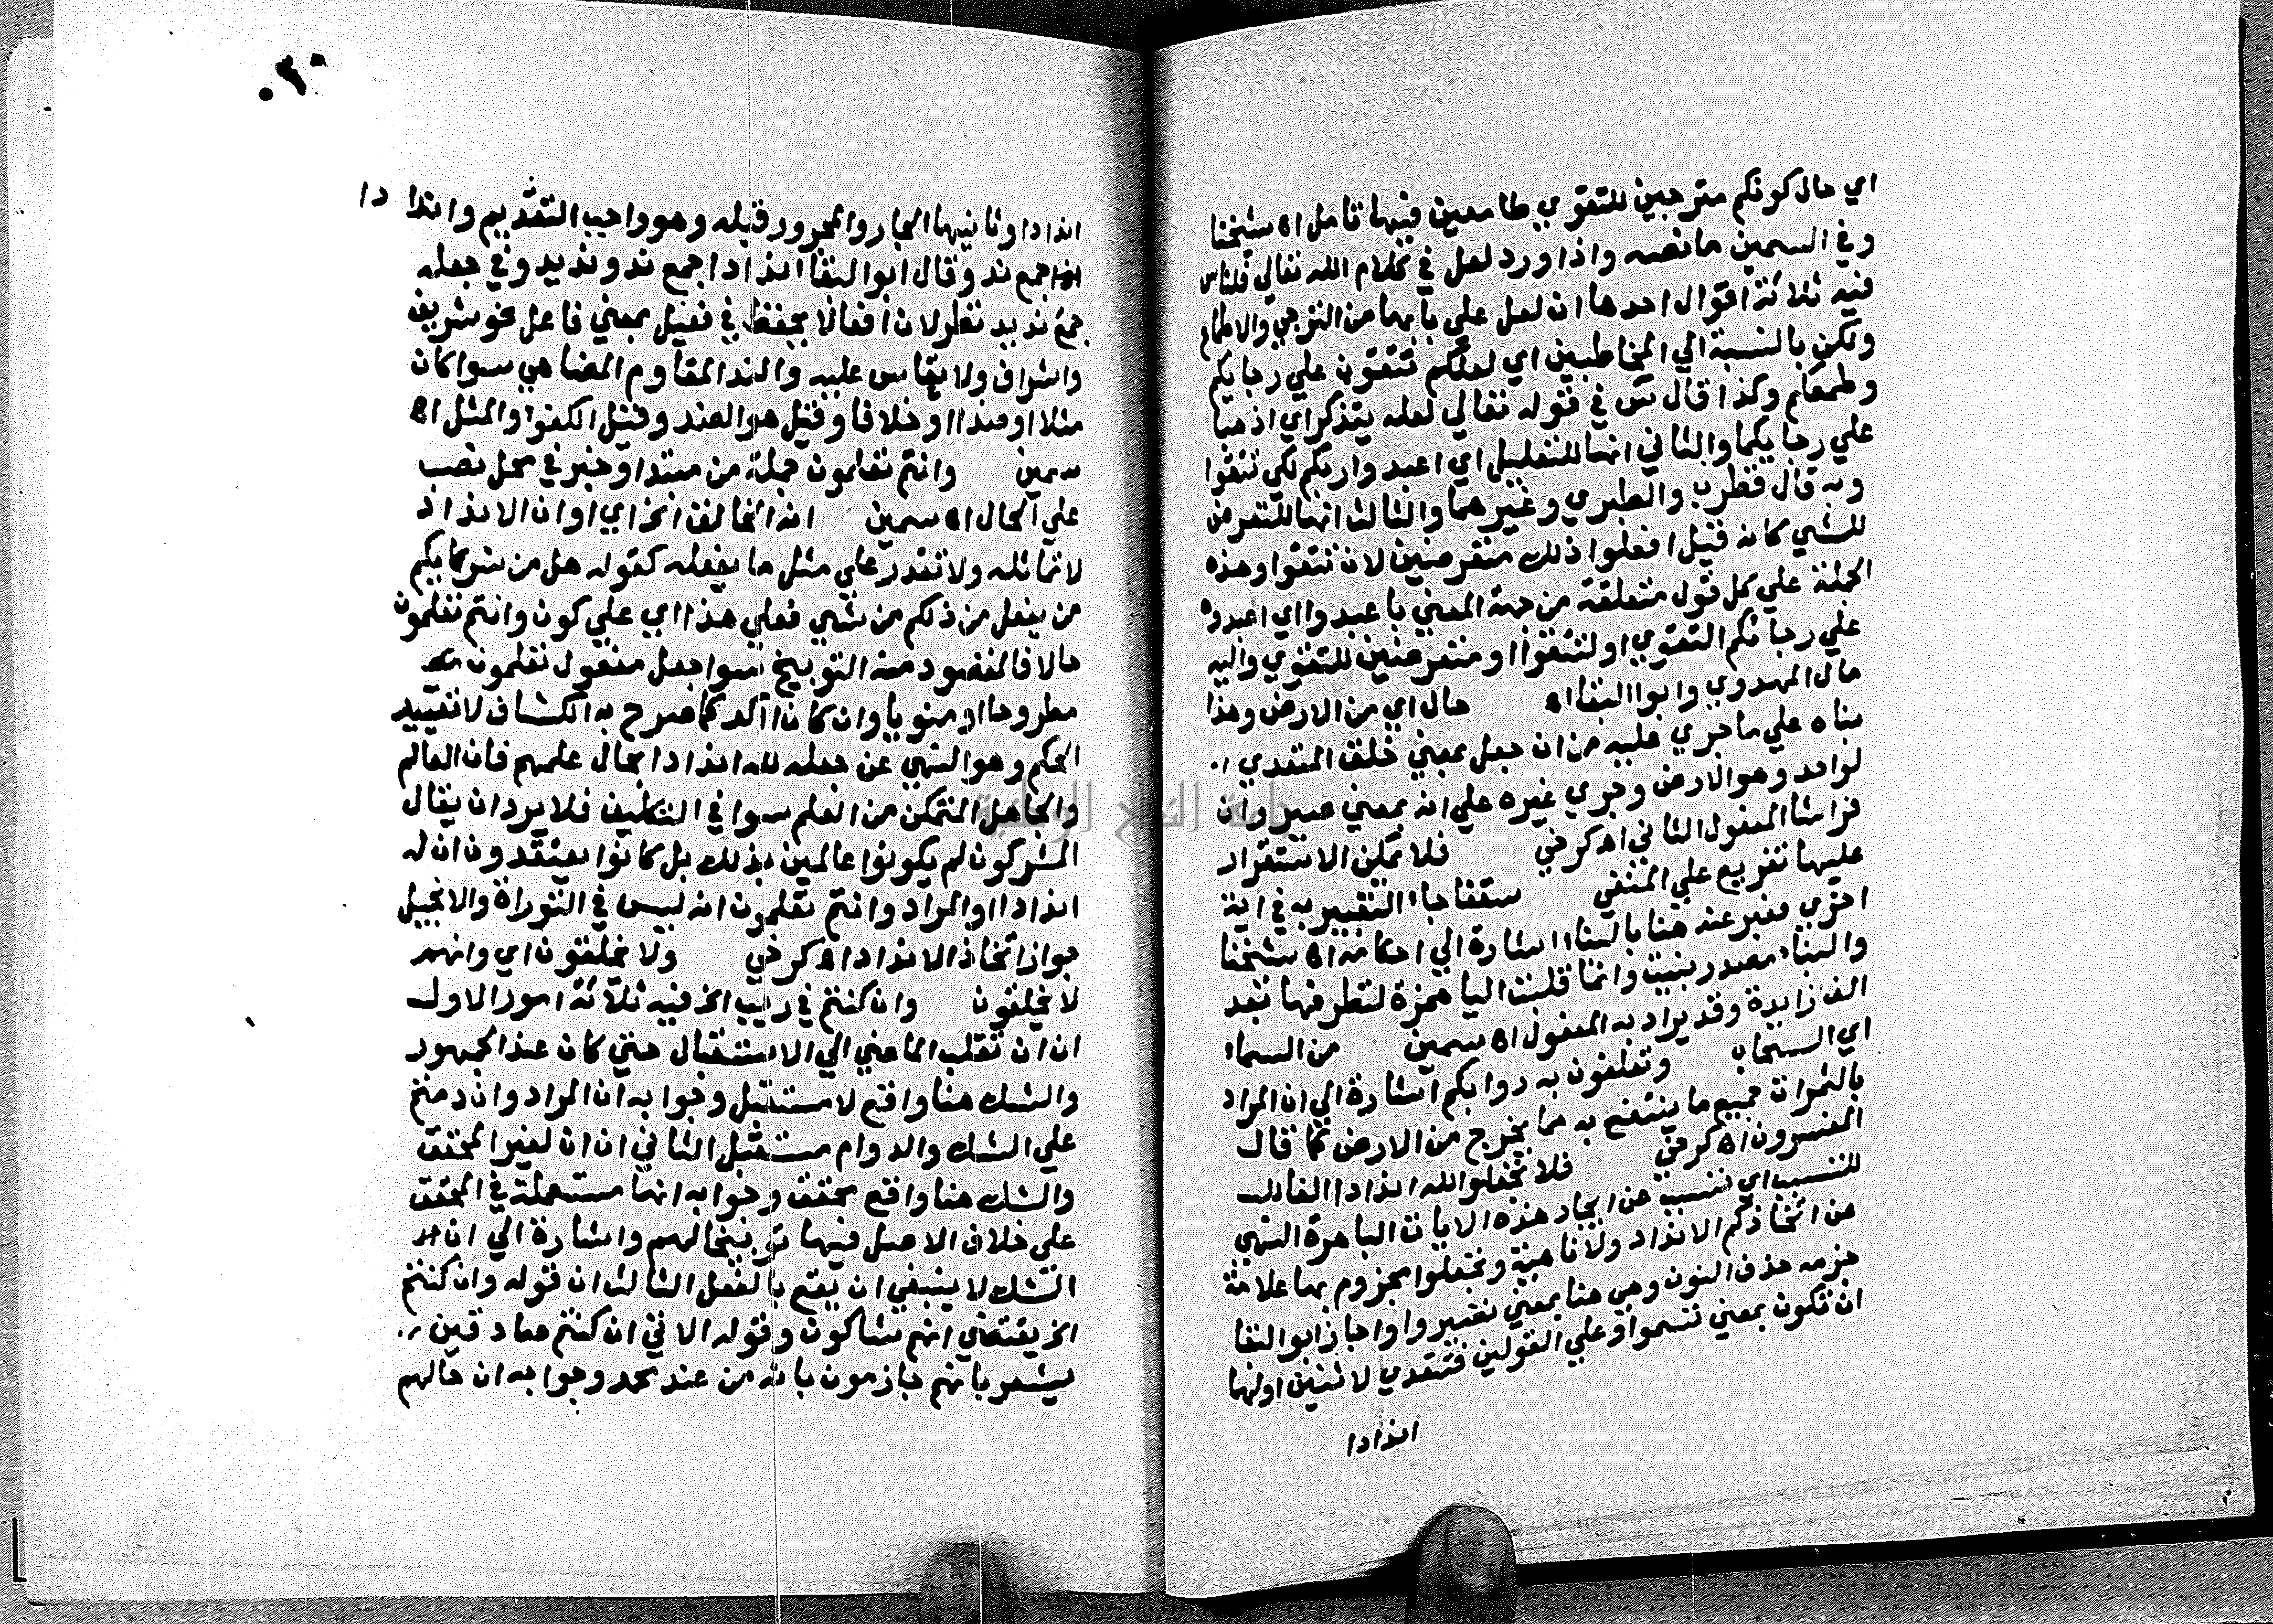 اي حال كونكم مترجين للتقوي طامعين فيها تامل اه شيخنا
وفي السمين ما نصه واذا ورد لعل في كلام الله تعالي فللناس
فيه ثلاثة اقوال احدها ان لعل علي بابها من الترجي والاطماع
ولكن بالنسبة الي المخاطبين اي لعلكم تتقون علي رجايكم
وطمعكم وكذا قال س في قوله تعالي لعله يتذكر اي اذهبا
علي رجايكما والثاني انها للتعليل اي اعبدوا ربكم لكي تتقوا
وبه قال قطرب والطبري وغيرهما والثالث انها للتعرض
للشي كانه قيل افعلوا ذلك متعرضين لان تتقوا وهذه
الجملة علي كل قول متعلقة من جهة المعني باعبدوا اي اعبدوه
علي رجائكم التقوي او لتتقوا او متعرضين للتقوي واليه
مال المهدوي وابو البقا اه حال اي من الارض وهذا
بناه علي ما جري عليه من ان جعل بمعني خلق المتعدي
لواحد وهو الارض وجري غيره علي انه بمعني صير وان
فراشا المفعول الثاني اه كرخي فلا يمكن الاستقرار
عليها تفريع علي المنفي سقفا جاء التعبير به في اية
اخري فعبر عنه هنا بالبناء اشارة الي احكامه اه شيخنا
والبناء مصدر بنيت وانما قلبت اليا همزة لتطرفها بعد
الف زايدة وقد يراد به المفعول اه سمين من السماء
اي السحاب وتعلفون به دوابكم اشارة الي ان المراد
بالثمرات جميع ما ينتفع به مما يخرج من الارض كما قال
المفسرون اه كرخي فلا تجعلوا لله اندادا الفا
للتسبب اي تسبب عن ايجاد هذه الايات الباهرة النهي
عن اتخاذكم الانداد ولا ناهية وتجعلوا مجزوم بها علامة
جزمه حذف النون وهي هنا بمعني تصيروا واجاز ابو البقا
ان تكون بمعني تسموا وعلي القولين فتتعدي لاثنين اولهما
اندادا
٣٠
اندادا وثانيهما الجار والمجرور قبله وهو واجب التقديم واندا دا
جمع ند وقال ابو البقا اندادا جمع ند ونديد وفي جعله
جمع نديد نظر لان افعالا يحفظ في فعيل بمعني فاعل نحو شريف
واشراف ولا يقاس عليه والند المقاوم المضاهي سوا كان
مثلا او ضدا او خلافا وقيل هو الضد وقيل الكفؤ والمثل اه
سمين وانتم تعلمون جملة من مبتدا وخبر في محل نصب
علي الحال اه سمين انه الخالق الخ اي او ان الانداد
لا تماثله ولا تقدر علي مثل ما يفعله كقوله هل من شركايكم
من يفعل من ذلكم من شي فعلي هذا اي علي كون وانتم تعلمون
حالا فالمقصود منه التوبيخ سوا جعل مفعول تعلمون
مطروحا او منويا وان كان اكد كما صرح به الكشاف لا تقييد
الحكم وهو النهي عن جعله لله اندادا بحال علمهم فان العالم
والجاهل المتمكن من العلم سوا في التكليف فلا يرد ان يقال
المشركون لم يكونوا عالمين بذلك بل كانوا يعتقدون ان له
اندادا او المراد وانتم تعلمون انه ليس في التوراة والانجيل
جواز اتخاذ الانداد اه كرخي ولا يخلقون اي وانهم
لا يخلقون وان كنتم في ريب الخ فيه ثلاثة امور الاول
ان ان تقلب الماضي الي الاستقبال حتي كان عند الجمهور
والشك هنا واقع لا مستقبل وجوابه ان المراد وان دمتم
علي الشك والدوام مستقبل الثاني ان ان لغير المحقق
والشك هنا واقع محقق وجوابه انها مستعملة في المحقق
علي خلاف الاصل فيها توبيخا لهم واشارة الي ان
الشك لا ينبغي ان يقع بالفعل الثالث ان قوله وان كنتم
الخ يقتضي انهم شاكون وقوله الاتي ان كنتم صادقين
يشعر بانهم جازمون بانه من عند محمد وجوابه ان حالهم